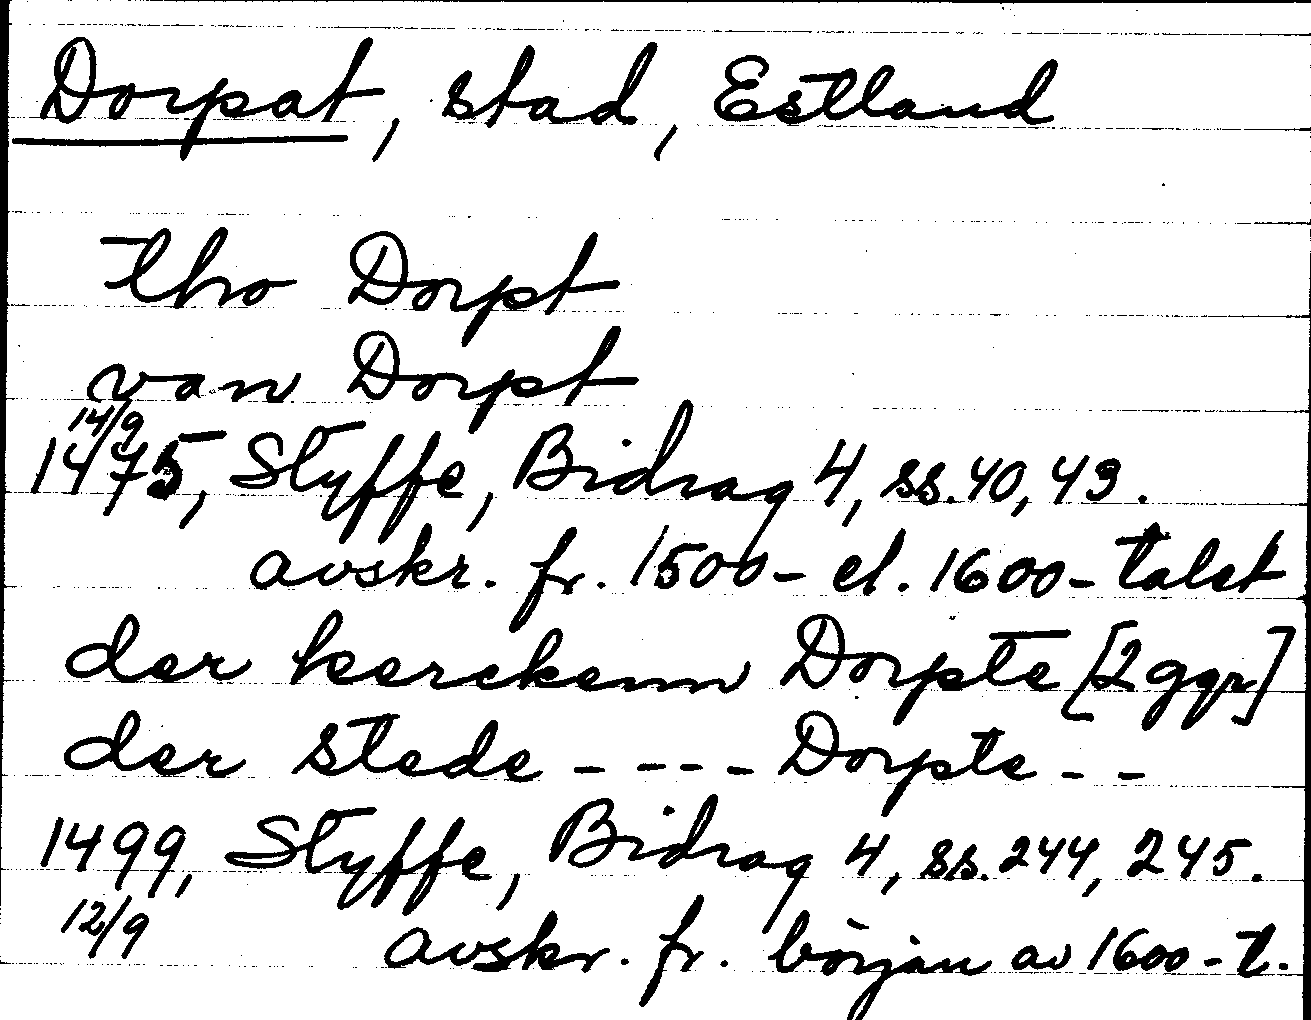 Dorpat, stad, Estland
tho Dorpt
van Dorpt
14/9
1475, Styffe, Bidrag 4, ss. 40, 43.
avskr. fr. 1500- el. 1600-talet
der kerckenn Dorpte [2 ggr]
der Stede - - - - Dorpte - -
1499, Styffe, Bidrag 4, ss. 244, 245.
12/9 avskr. fr. början av 1600-t.